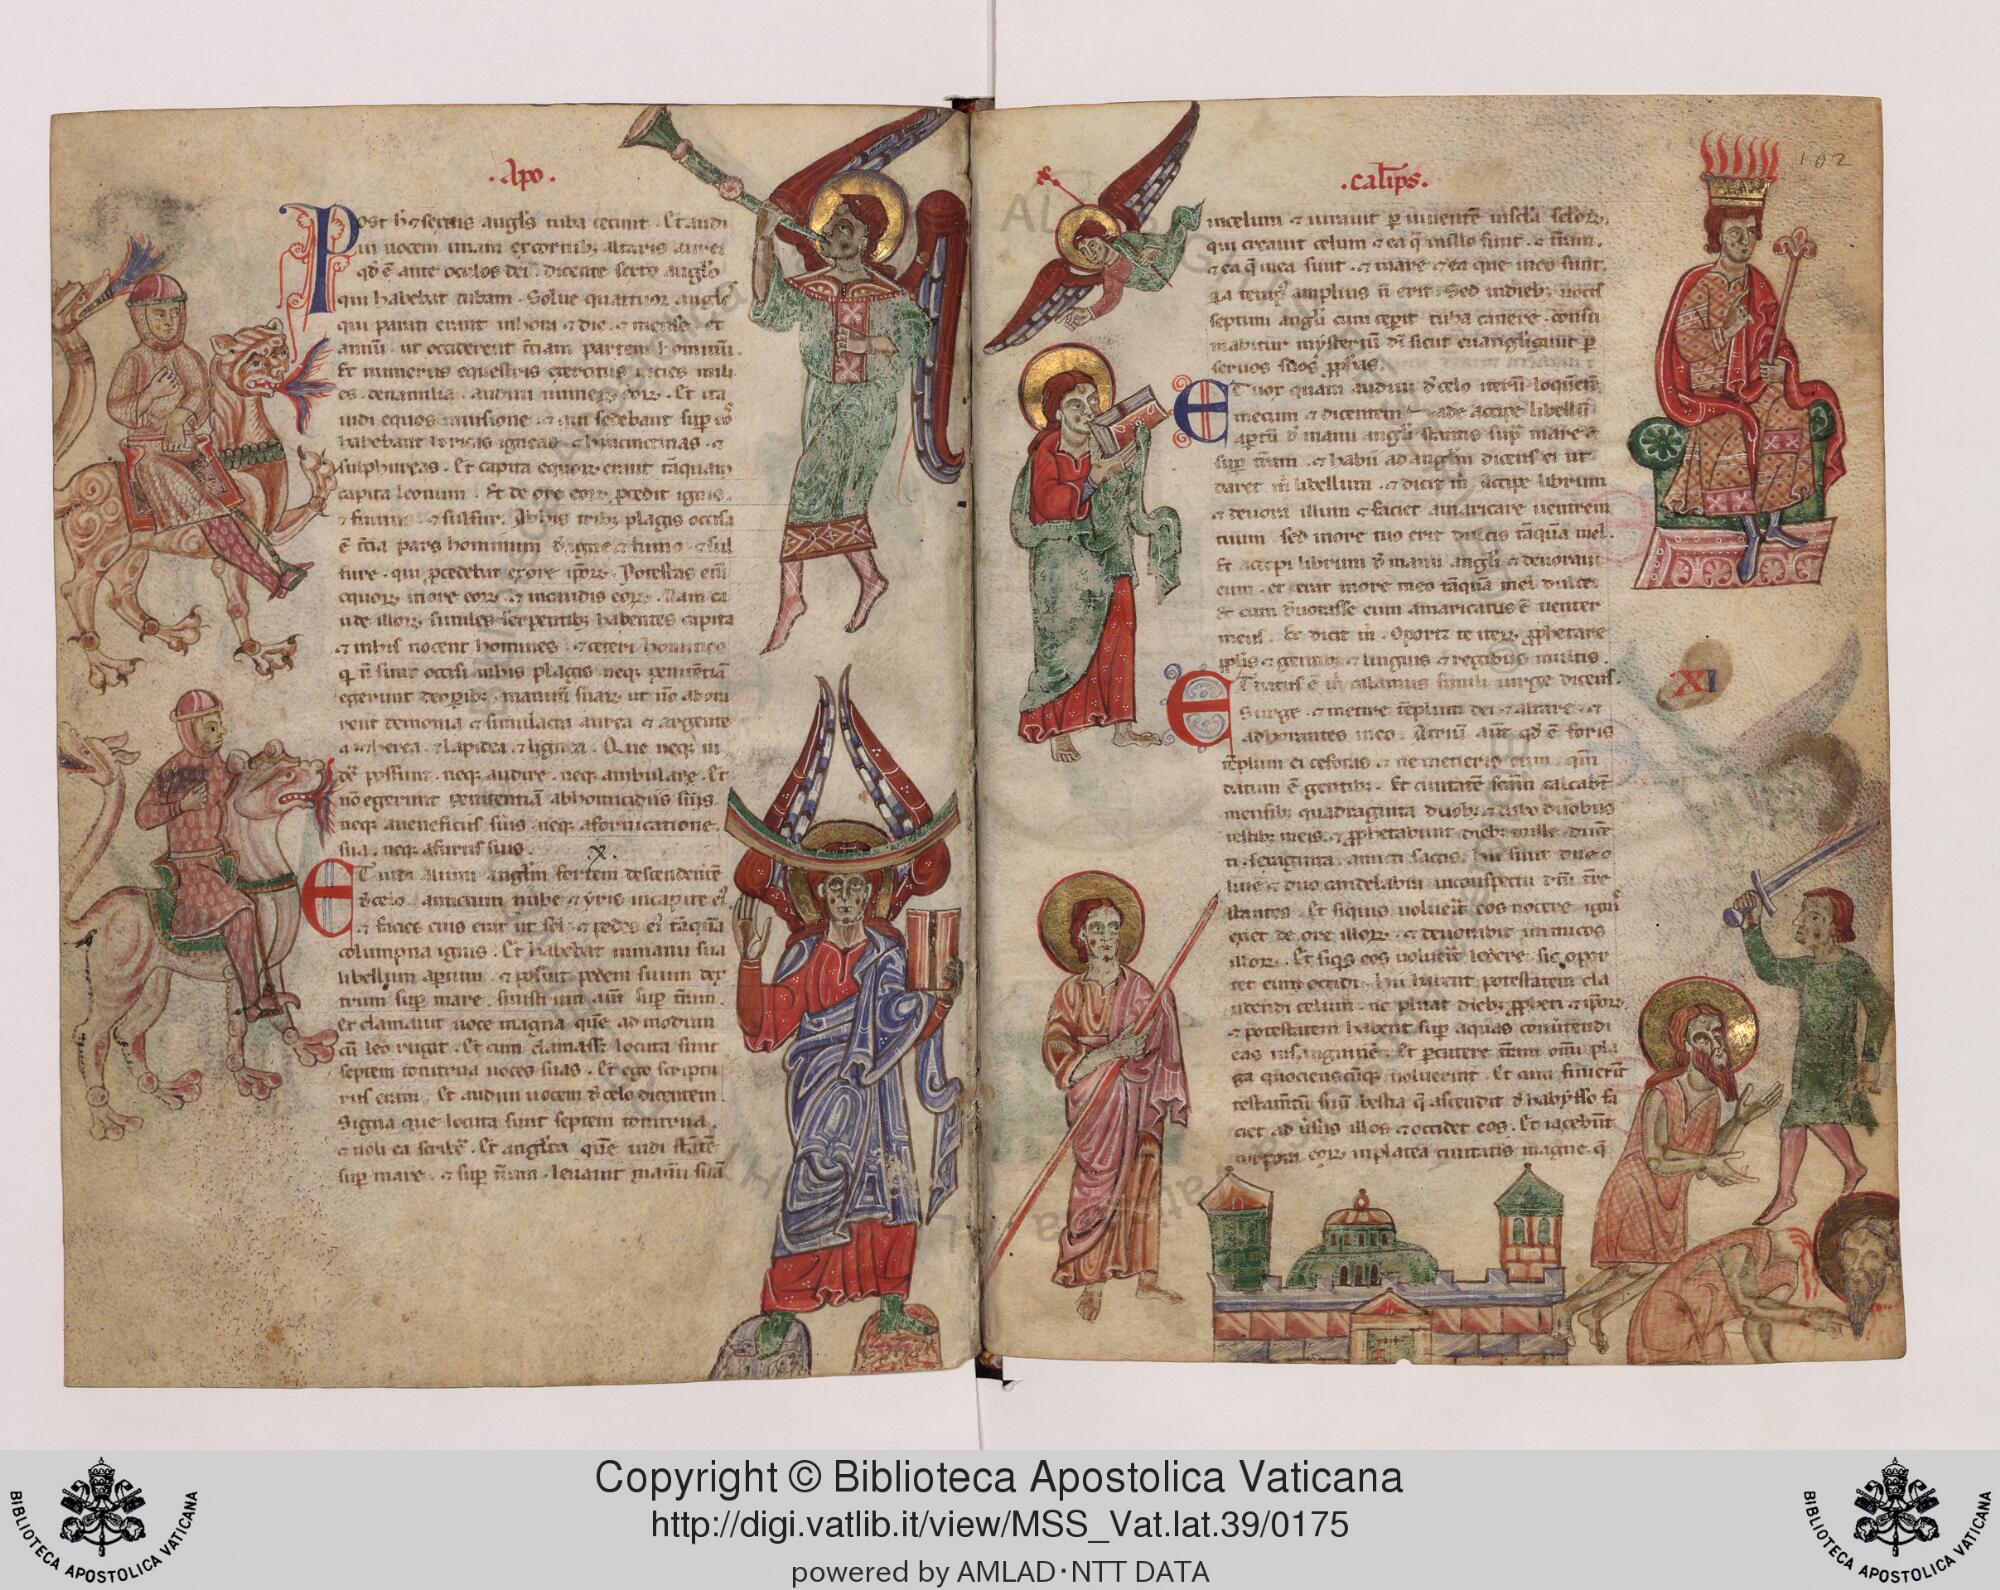 .Apo.
Post h̄ ⁊ sextus angl's tuba cecinit. Et audi
ui uocem unam ex cornib; altaris aurei
qd̄ ē ante oculos dei. dicentē sexto anglo
qui habebat tubam. Solue quattuor anglos
qui parati erant in hora ⁊ die ⁊ mense et
annū. ut occiderent t̄ciam partem hominū.
Et numerus equestris exercitus uicies mili
es dena milia. audiui numerū eoꝝ. Et ita
uidi equos in uisione ⁊ qui sedebant sup eos
habebant loricas igneas ⁊ hiacinctinas ⁊
sulphureas. Et capita equoꝝ erant tāquam
capita leonum. Et de ore eoꝝ p̄cedit ignis.
⁊ fumus ⁊ sulfur. Ab his trib; plagis occisa
ē t̄cia pars hominum d̄ igne ⁊ fumo ⁊ sul
fure. qui p̄cedebat ex ore ip̄oꝝ. Potestas eni
equoꝝ in ore eoꝝ ⁊ in caudis eoꝝ. Nam ca
ude illoꝝ similes serpentib; habentes capita
⁊ in his nocent homines. ⁊ ceteri homines
q̄ n̄ sunt occisi in his plagis neq; penitentiā
egerunt de opib; manuū suaꝝ ut nō ador
rent demonia ⁊ simulacra aurea ⁊ argente
a ⁊ herea ⁊ lapidea ⁊ lignea. Que neq; ui
dē possunt neq; audire neq; ambulare. Et
nō egerunt penitentiā ab homicidiis suis
neq; a ueneficiis suis neq; a fornicatione
sua. neq; a furtis suis.
.X.
Et uidi alium angl'm fortem descendentē
d̄ celo amictum nube ⁊ yris in capite ei'.
⁊ facies eius erat ut sol ⁊ pedes ei' tāquā
columpna ignis. Et habebat in manu sua
libellum aptum. ⁊ posuit pedem suum dex
trum sup mare. sinistrum aūt sup t̄ram.
Et clamauit uoce magna quē ad modum
cū leo rugit. Et cum clamass; locuta sunt
septem tonitrua uoces suas. Et ego scriptu
rus eram. Et audiui uocem d̄ celo dicentem.
Signa que locuta sunt septem tonitrua.
⁊ noli ea scribē. Et angl's quē uidi stātē
sup mare. ⁊ sup t̄ram. leuauit manū suā
.calips.
102
in celum ⁊ iurauit p̄ uiuentē in scl'a scl'oꝝ.
qui creauit celum ⁊ ea q̄ in illo sunt. ⁊ t̄ram.
⁊ ea q̄ in ea sunt. ⁊ mare ⁊ ea que in eo sunt.
q̄a temp' amplius n̄ erit. Sed in dieb; uocis
septimi angl'i cum ceperit tuba canere. consu
mabitur mysteriū di sicut euangl'izauit p̄
seruos suos p̄phas.
Et uox quam audiui d̄ celo iterū loquentē
mecum ⁊ dicentem. Uade accipe libellū
aptū d̄ manu angl'i stantis sup mare ⁊
sup t̄ram. ⁊ habii ad angl'm dicens ei ut
daret m̄ libellum. ⁊ dicit m̄. Accipe librum
⁊ deuora illum ⁊ faciet amaricare uentrem
tuum. sed in ore tuo erit dulcis tāquā mel.
Et accepi librum d̄ manu angl'i ⁊ deuoraui
eum. et erat in ore meo tāquā mel dulce.
Et cum d̄uorasse eum amaricatus ē uenter
meus. Et dicit m̄. Oport; te iteꝝ p̄phetare
pp̄lis ⁊ gentib; ⁊ linguis ⁊ regibus multis.
XI
Et datus ē m̄ calamus simili uirge dicens.
Surge ⁊ metire tēplum dei ⁊ altare ⁊
adhorantes in eo. Atriū aūt qd̄ ē foris
tēplum eice foras ⁊ ne metieris eum. qm̄
datum ē gentib;. Et ciuitatē scām calcabt̄
mensib; quadraginta duob; ⁊ dabo duobus
testib; meis. ⁊ p̄phetabunt dieb; mille ducē
ti sexaginta amicti saccis. Hii sunt due o
liue ⁊ duo candelabra in conspectu dn̄i t̄re
stantes. Et siquis uoluerit eos nocere ignis
exiet de ore illoꝝ. ⁊ deuorabit inimicos
illoꝝ. Et siq̄s eos uoluerit ledere. sic opor
tet eum occidi. Hii habent potestatem cla
udendi celum. ne pluat dieb; p̄pheti ⁊ ip̄oꝝ.
⁊ potestatem habent sup aquas conutendi
eas in sanguinē. Et p̄cutere t̄ram omi pla
ga quocienscūq; uoluerint. Et cum finierīt
testam̄tū suū bestia q̄ ascendit d̄ habysso fa
ciet ad ūsus illos ⁊ occidet eos. Et iacebūt
corpora eoꝝ in platea ciuitatis magne q̄
Copyright © Biblioteca Apostolica Vaticana
http://digi.vatlib.it/view/MSS_Vat.lat.39/0175
powered by AMLAD·NTT DATA
BIBLIOTECA APOSTOLICA VATICANA
BIBLIOTECA APOSTOLICA VATICANA